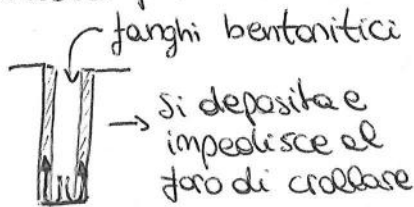 fanghi bentonitici
si deposita e
impedisce al
foro di crollare